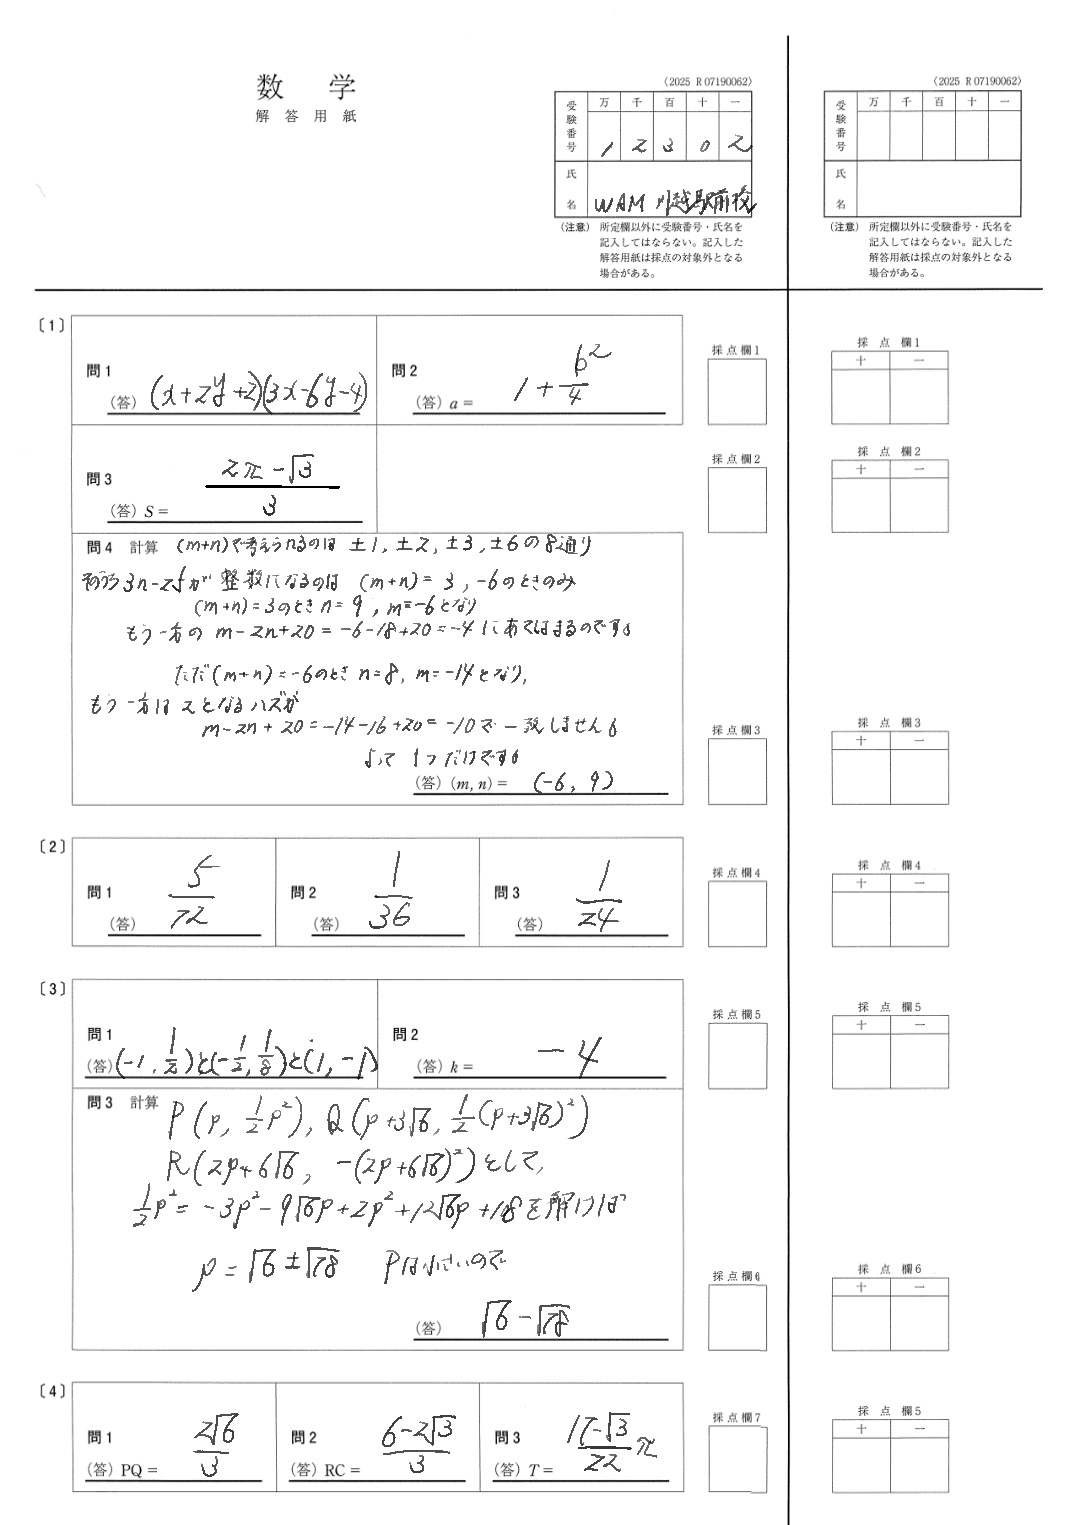 数 学
解 答 用 紙
〈2025 R 07190062〉
受験番号 万 千 百 十 一
1 2 3 0 2
氏名 WAM 川越駅前校
(注意) 所定欄以外に受験番号・氏名を
記入してはならない。記入した
解答用紙は採点の対象外となる
場合がある。
〈2025 R 07190062〉
受験番号 万 千 百 十 一
氏名
(注意) 所定欄以外に受験番号・氏名を
記入してはならない。記入した
解答用紙は採点の対象外となる
場合がある。
〔1〕
問1 (答) (x+2y+2)(3x-6y-4)
問2 (答) a = 1 + b²/4
採点欄1
採 点 欄1
十 一
問3 (答) S = (2π-√3)/3
採点欄2
採 点 欄2
十 一
問4 計算 (m+n)で考えられるのは ±1, ±2, ±3, ±6の8通り
そのうち3n-24が 整数になるのは (m+n)= 3, -6のときのみ
(m+n)=3のとき n=9, m=-6となり
もう一方の m-2n+20=-6-18+20=-4にあてはまるのです。
ただ(m+n)=-6のとき n=8, m=-14となり、
もう一方は 2となるハズが
m-2n+20=-14-16+20=-10で一致しません。
よって 1つだけです。
(答) (m, n) = (-6, 9)
採点欄3
採 点 欄3
十 一
〔2〕
問1 (答) 5/72
問2 (答) 1/36
問3 (答) 1/24
採点欄4
採 点 欄4
十 一
〔3〕
問1 (答) (-1, 1/2)と(-1/2, 1/8)と(1, -1)
問2 (答) k = -4
採点欄5
採 点 欄5
十 一
問3 計算 P(p, 1/2p²), Q(p+3√6, 1/2(p+3√6)²)
R(2p+6√6, -(2p+6√6)²)として、
1/2p²=-3p²-9√6p+2p²+12√6p+18を解けば
p=√6±√78 Pは小さいので
(答) √6-√78
採点欄6
採 点 欄6
十 一
〔4〕
問1 (答) PQ = 2√6/3
問2 (答) RC = (6-2√3)/3
問3 (答) T = (17-√3)/22 π
採点欄7
採 点 欄5
十 一